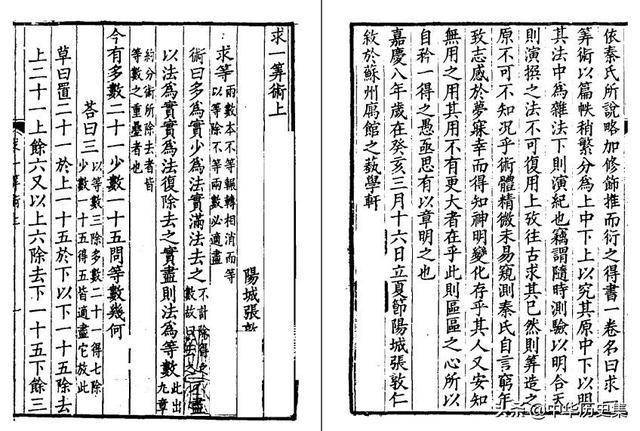 依秦氏所說略加修飾推而衍之得書一卷名曰求一
筭術以篇帙稍繁分為上中下上以究其原中下以明
其法中為雜法下則演紀也竊謂隨時測驗以明合天
則演撰之法不可復用上攷往古求其已然則筭造之
原不可不知況乎術體精微未易窺測秦氏自言窮年
致志感於夢寐幸而得知神明變化存乎其人又安知
無用之用其用不有更大者在乎此則區區之心所以
自矜一得之愚亟思有以章明之也
嘉慶八年歲在癸亥三月十六日立夏節陽城張敦仁
敘於蘇州廨館之蓺學軒
求一筭術上
陽城張敦
求等兩數本不等輾轉相消而等以等除不等兩數必適盡
術曰多數為實少數為法實滿法去之不計除得之數故曰去之不盡
以法為實實為法復除去之實盡則法為等數此出九章
約分術所除去者皆等數之重疊者也
今有多數二十一少數一十五問等數幾何
答曰三以等數三除多數二十一得七除少數一十五得五皆適盡它故此
草曰置二十一於上一十五於下以下一十五除去
上二十一上餘六又以上六除去下一十五下餘三
求一筭術上
头条@中华历史集